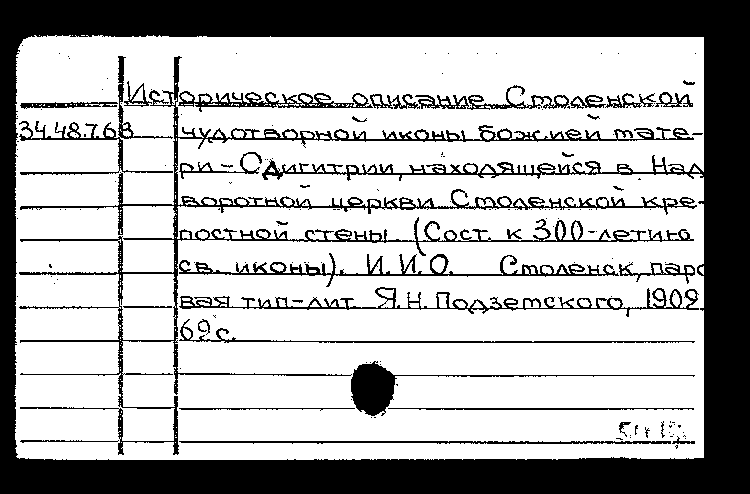 Историческое описание Смоленской
34.48.7.63 чудотворной иконы божией мате-
ри-Одигитрии, находящейся в Над
воротной церкви Смоленской кре-
постной стены (Сост. к 300-летию
св. иконы). И.И.О. Смоленск, паро
вая тип-лит. Я.Н. Подземского, 1902.
69с.